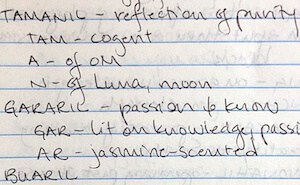 TAMANIL - reflection of purity
TAM - cogent
A - of OM
N - of Luna, moon
GARARIL - passion to know
GAR - lit on knowledge, passi
AR - jasmine-scented
BUARIL